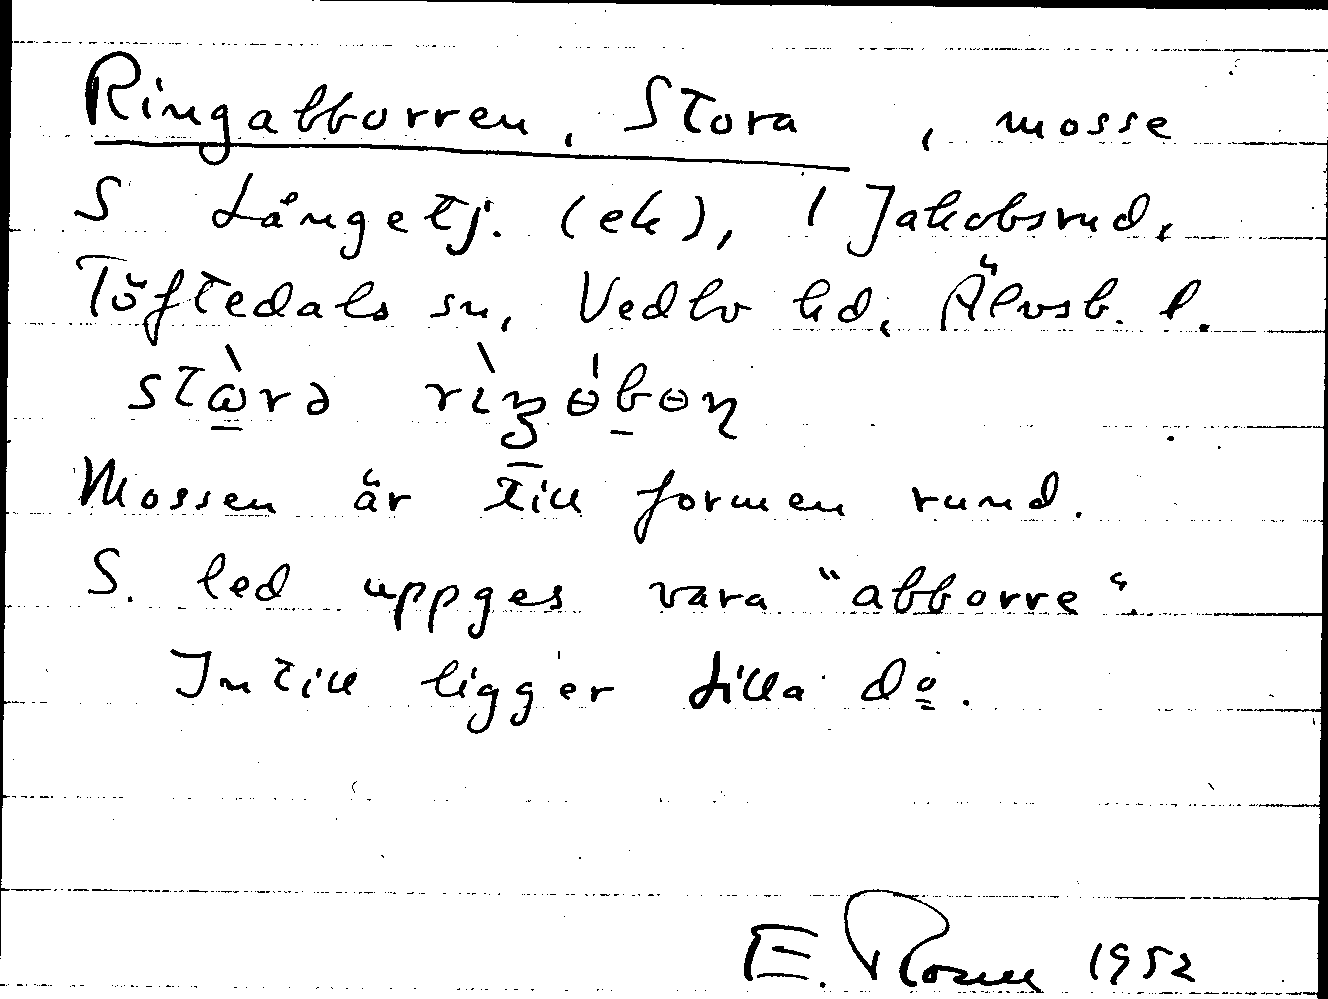 Ringabborren, Stora, mosse
S Långetj. (ek), 1 Jakobsrud,
Töftedals sn, Vedbo hd, Älvsb. l.
Mossen är till formen rund.
S. led uppges vara "abborre".
Intill ligger Lilla dº.
E. 1952